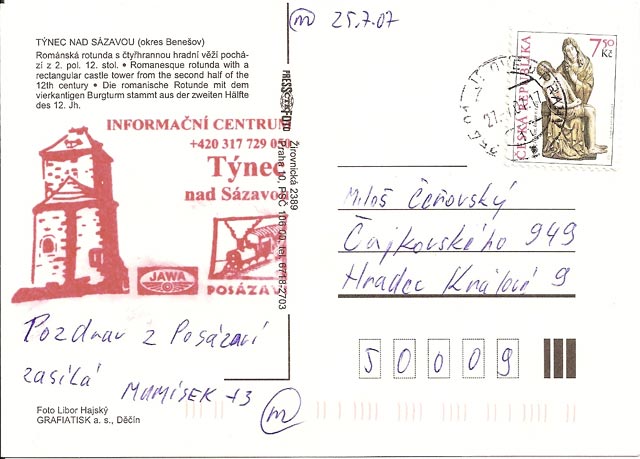 m 25.7.07
TÝNEC NAD SÁZAVOU (okres Benešov)
Románská rotunda s čtyřhrannou hradní věží pochá-
zí z 2. pol. 12. stol. • Romanesque rotunda with a
rectangular castle tower from the second half of the
12th century • Die romanische Rotunde mit dem
vierkantigen Burgturm stammt aus der zweiten Hälfte
des 12. Jh.
INFORMAČNÍ CENTRUM
+420 317 729 050
Týnec
nad Sázavou
JAWA
POSÁZAV
PRESSFOTO
Žirovnická 2389
Praha 10, PSČ 106 00, tel. 6718-2703
ČESKÁ REPUBLIKA
7,50
Kč
Miloš Čeňovský
Čajkovského 949
Hradec Králové 9
50009
Pozdrav z Posázaví
zasílá
MUMÍSEK +3
m
Foto Libor Hajský
GRAFIATISK a. s., Děčín